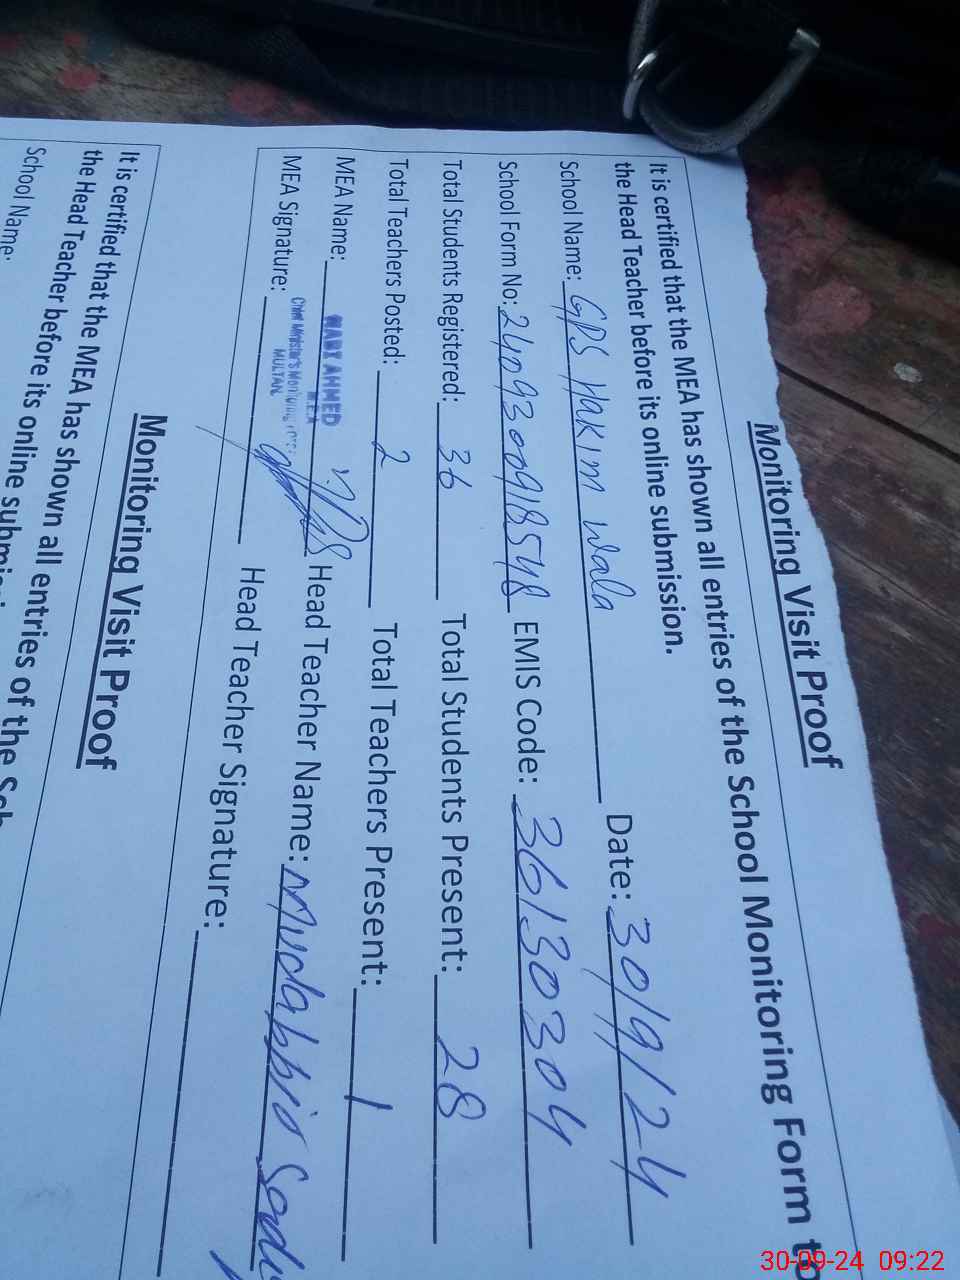 Monitoring Visit Proof
It is certified that the MEA has shown all entries of the School Monitoring Form to
the Head Teacher before its online submission.
School Name: GPS Hakim Wala Date: 30/9/24
School Form No: 2409300918548 EMIS Code: 36130304
Total Students Registered: 36 Total Students Present: 28
Total Teachers Posted: 2 Total Teachers Present: 1
MEA Name: AHMED M.E.A Head Teacher Name: Mudabbir
MEA Signature: Chief Minister's Monitoring MULTAN Head Teacher Signature:
Monitoring Visit Proof
It is certified that the MEA has shown all entries of the Sch
the Head Teacher before its online submi
School Name:
30-09-24 09:22